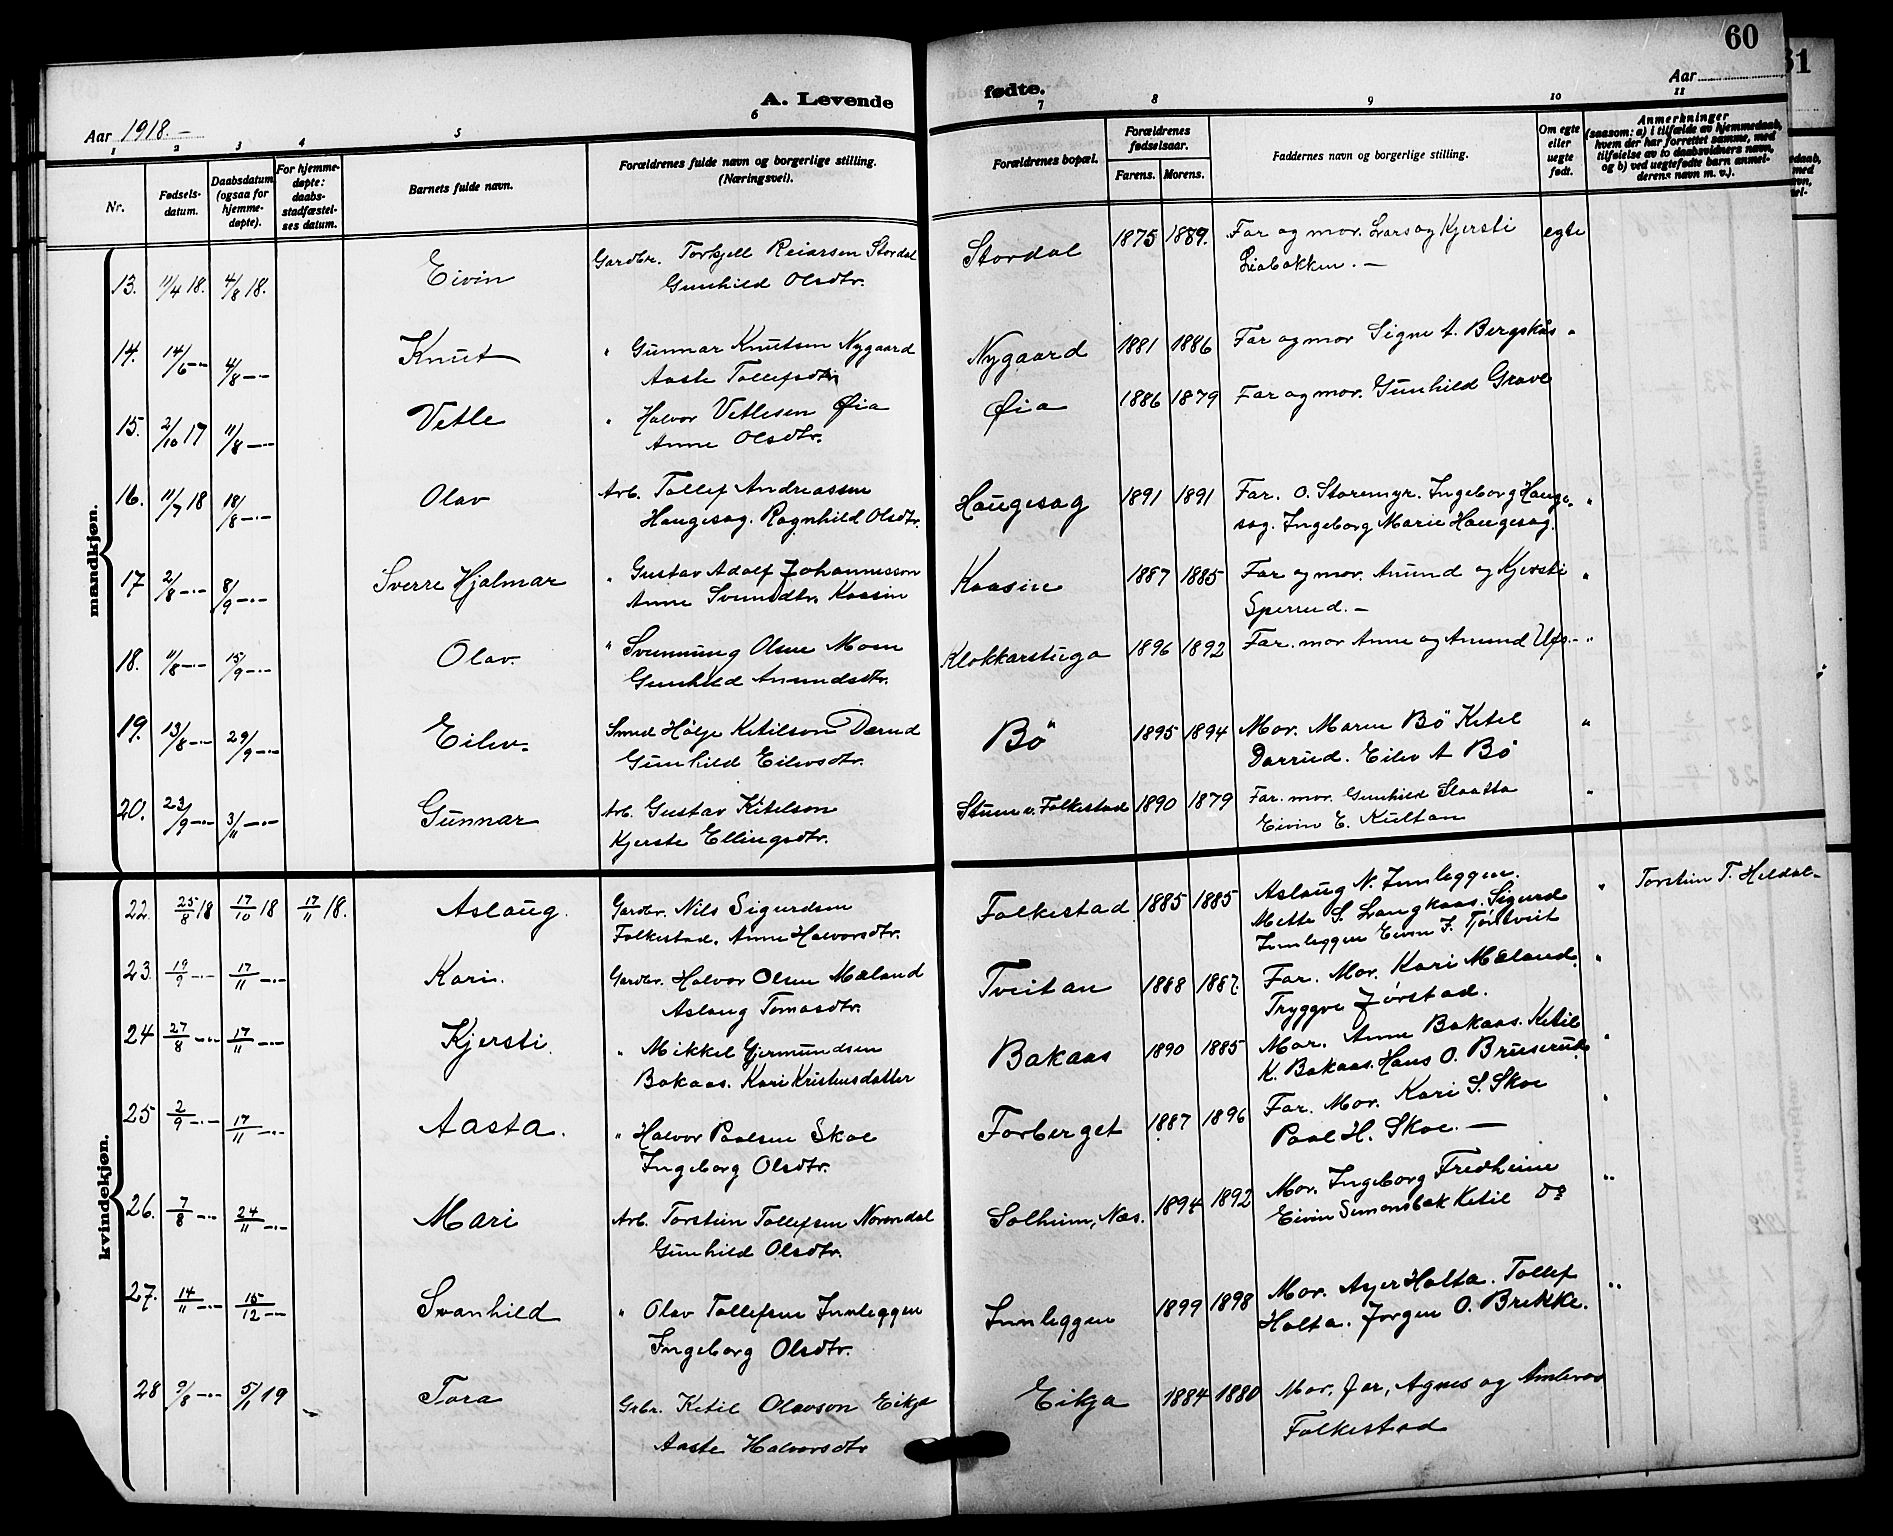 60
A. Levende fødte.
Aar 1918.-
Aar
61
1 2 3 4 5 6 7 8 9 10 11
Nr.
Fødsels-
datum.
Daabsdatum
(ogsaa for
hjemme-
døpte).
For hjemme-
døpte:
daabs-
stadfæstel-
ses datum.
Barnets fulde navn.
Forældrenes fulde navn og borgerlige stilling.
(Næringsvei).
Forældrenes bopæl.
Forældrenes
fødselsaar.
Farens. Morens.
Faddernes navn og borgerlige stilling.
Om egte
eller
uegte
født.
Anmerkninger
(saasom: a) i tilfælde av hjemmedaab,
hvem der har forrettet samme, med
tilføielse av to daabsvidners navn,
og b) ved uegtefødte barn anmel-
derens navn m. v.).
mandkjøn.
13. 11/4 18. 4/8 18. Eivin Gardbr. Torkjell Reiarsen Stordal Stordal 1875 1889. Far og mor. Lars og Kjersti egte
Gunhild Olsdtr. Liabakken. —
14. 14/6 -"- 4/8 -"- Knut " Gunnar Knutsen Nygaard Nygaard 1881 1886 Far og mor Signe A. Bergskås "
Aaste Tollefsdtr
15. 2/10 17 11/8 -"- Vetle " Halvor Vetlesen Øia Øia 1886 1879 Far og mor. Gunhild Grave
Anne Olsdtr.
16. 11/7 18 18/8 -"- Olav Arb. Tollef Andreassen Haugesag 1891 1891 Far. O. Staremyr. Ingeborg Hauge- "
Haugesag. Ragnhild Olsdtr. sag. Ingeborg Marie Haugesag.
17 2/8 -"- 8/9 -"- Sverre Hjalmar " Gustav Adolf Johannesson Kaasin 1887 1885 Far og mor. Anund og Kjersti "
Anne Svensdtr. Kaasin Sperrud. —
18. 11/8 -"- 15/9 -"- Olav. " Svennung Olsen Moen Klokkarstuga 1896 1892 Far. mor Anne og Anund Ufs.- "
Gunhild Anundsdtr.
19. 13/8 -"- 29/9 -"- Eilev. Smed Hølje Ketilson Darud Bö 1895 1894 Mor. Maren Bö Ketil "
Gunhild Eilevsdtr. Darrud. Eilev A Bö
20. 23/9 -"- 3/11 -"- Gunnar Arb. Gustav Kitelson Stuen u. Folkestad 1890 1879 Far. mor. Gunhild Slaatta "
Kjerste Ellingsdtr. Eivin E. Kultan
kvindekjøn.
22. 25/8 18 17/10 18 17/11 18. Aslaug. Gardbr. Nils Sigurdsen Folkestad 1885 1885 Aslaug N. Innleggen. " Torstein T. Heldal-
Folkestad. Anne Halvorsdtr. Mette S. Langkaas. Sigurd
Innleggen Eivin J. Tjöntveit
23. 19/9 -"- 17/11 -"- Kari. Gardbr. Halvor Olsen Mæland Tveitan 1888 1887. Far. Mor. Kari Mæland. "
Aslaug Tomasdtr. Tryggve Jørstad.
24 27/8 -"- 17/11 -"- Kjersti. " Mikkel Gjermundsen Bakaas 1890 1885 Mor. Anne Bakaas. Ketil "
Bakaas. Kari Kristensdatter K. Bakaas. Hans O. Bruserud.
25 2/9 -"- 17/11 -"- Aasta. " Halvor Paalsen Skoe Forberget 1887 1896 Far. Mor. Kari S. Skoe "
Ingeborg Olsdtr. Paal H. Skoe. —
26. 7/8 -"- 24/11 -"- Mari Arb. Torstein Tollefsen Norendal Solheim, Næs. 1894 1892 Mor. Ingeborg Fredheim "
Gunhild Olsdtr. Eivin Simonsbak Ketil Do
27. 14/11 -"- 15/12 -"- Svanhild " Olav Tollefsen Innleggen Innleggen 1899 1898 Mor. Ager Holta. Tollef "
Ingeborg Olsdtr. Holta. Jorgen O. Brekke.
28 9/8 -"- 5/1 19 Tora Grbr. Ketil Olavson Eikja Eikja 1884 1880 Mor, far, Agnes og
Aaste Halvorsdtr Folkestad